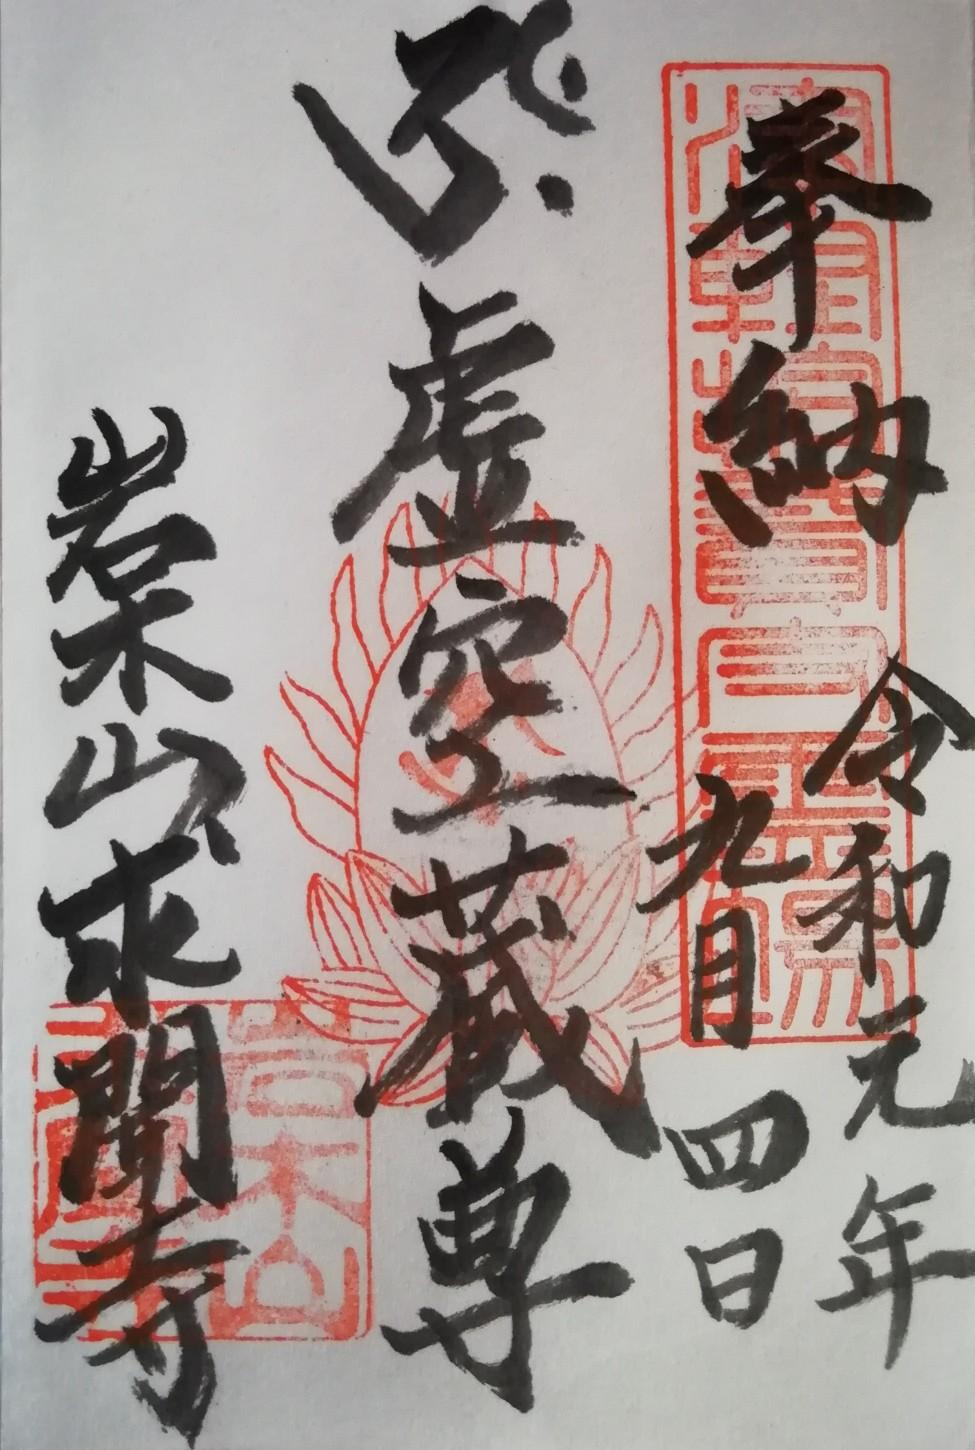 奉納
令和元年
九月四日
虚空蔵尊
岩木山求聞寺